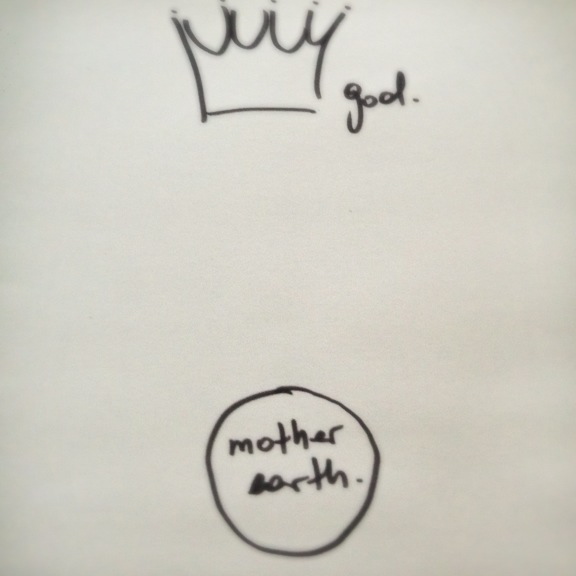 god.
mother
earth.